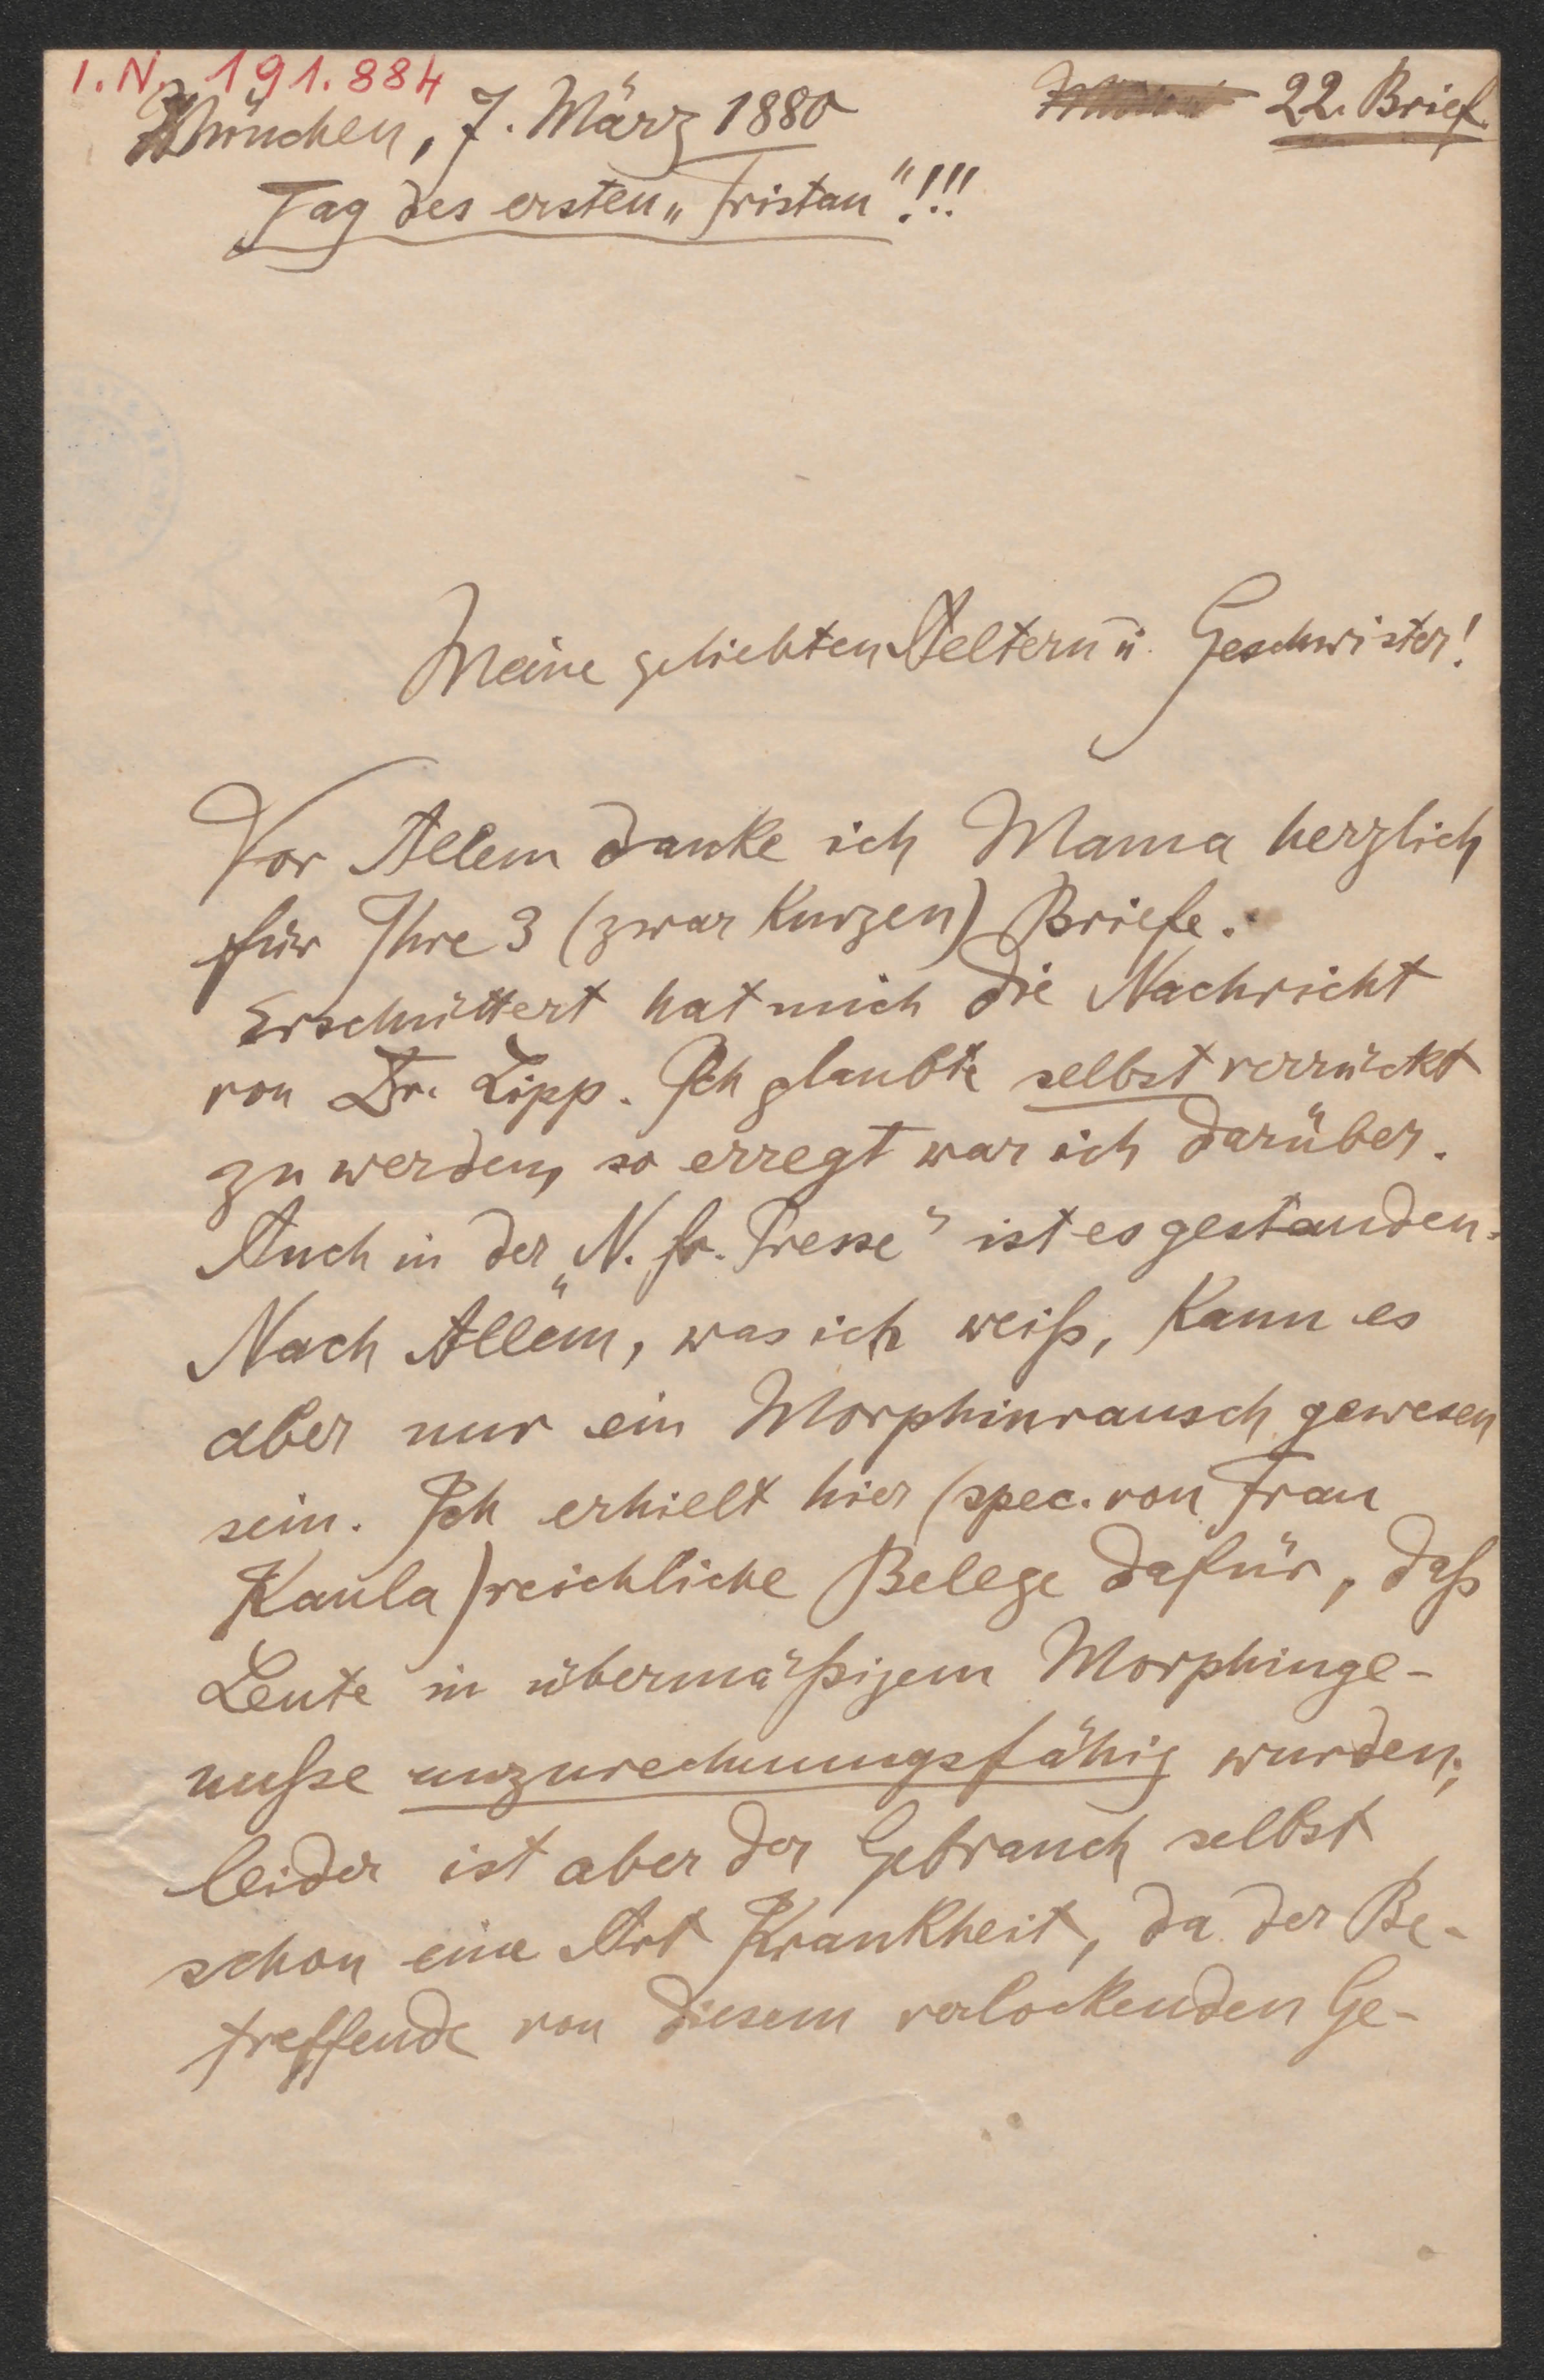 I. N. 191.884
München, 7. März 1880
22. Brief.
Tag des ersten „Tristan"!!!
Meine geliebten Aeltern u. Geschwister!
Vor Allem danke ich Mama herzlich
für Ihre 3 (zwar kurzen) Briefe.
Erschüttert hat mich die Nachricht
von Dr. Lipp. Ich glaubte selbst verrückt
zu werden, so erregt war ich darüber.
Auch in der „N. fr. Presse" ist es gestanden.
Nach Allem, was ich weiß, kann es
aber nur ein Morphinrausch gewesen
sein. Ich erhielt hier (spec. von Frau
Kaula) reichliche Belege dafür, daß
Leute in übermäßigem Morphinge-
nuße unzurechnungsfähig wurden;
leider ist aber der Gebrauch selbst
schon eine Art Krankheit, da der Be-
treffende von diesem verlockenden Ge-